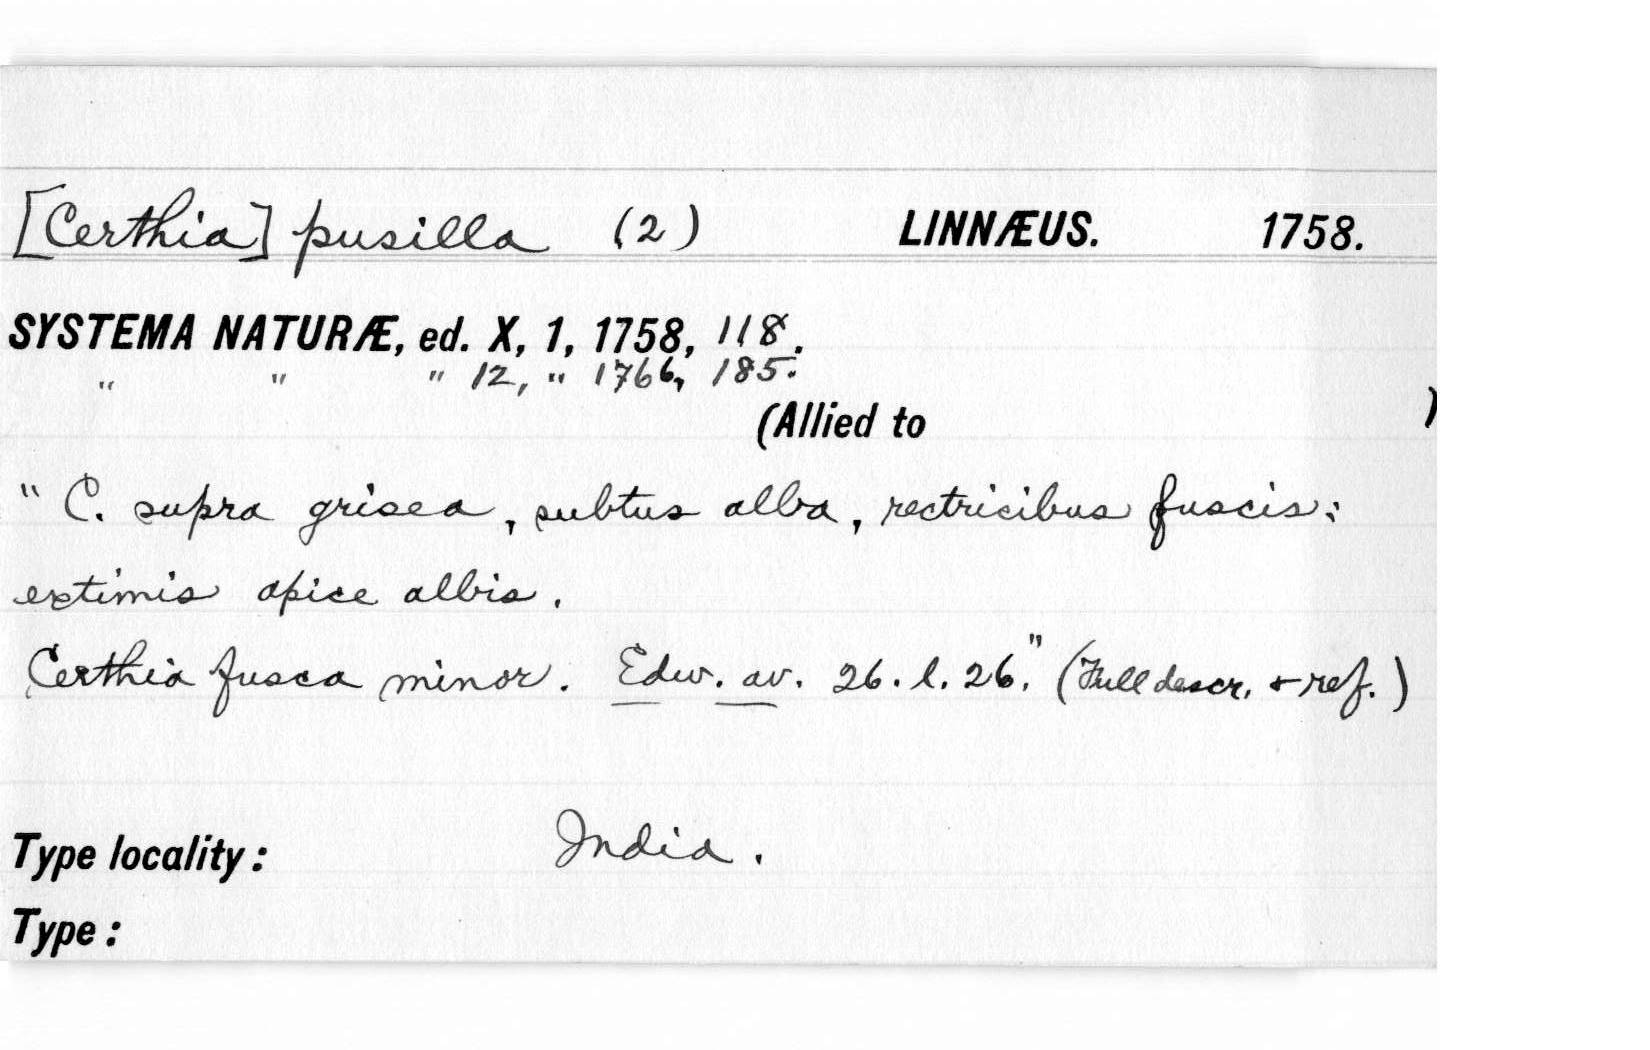 [Certhia] pusilla (2) LINNÆUS. 1758.
SYSTEMA NATURÆ, ed. X, 1, 1758, 118.
" " " 12, " 1766, 185.
(Allied to )
" C. supra grisea, subtus alba, rectricibus fuscis;
extimis apice albis.
Certhia fusca minor. Edw. av. 26. l. 26." (Full descr. + ref.)
Type locality: India.
Type: